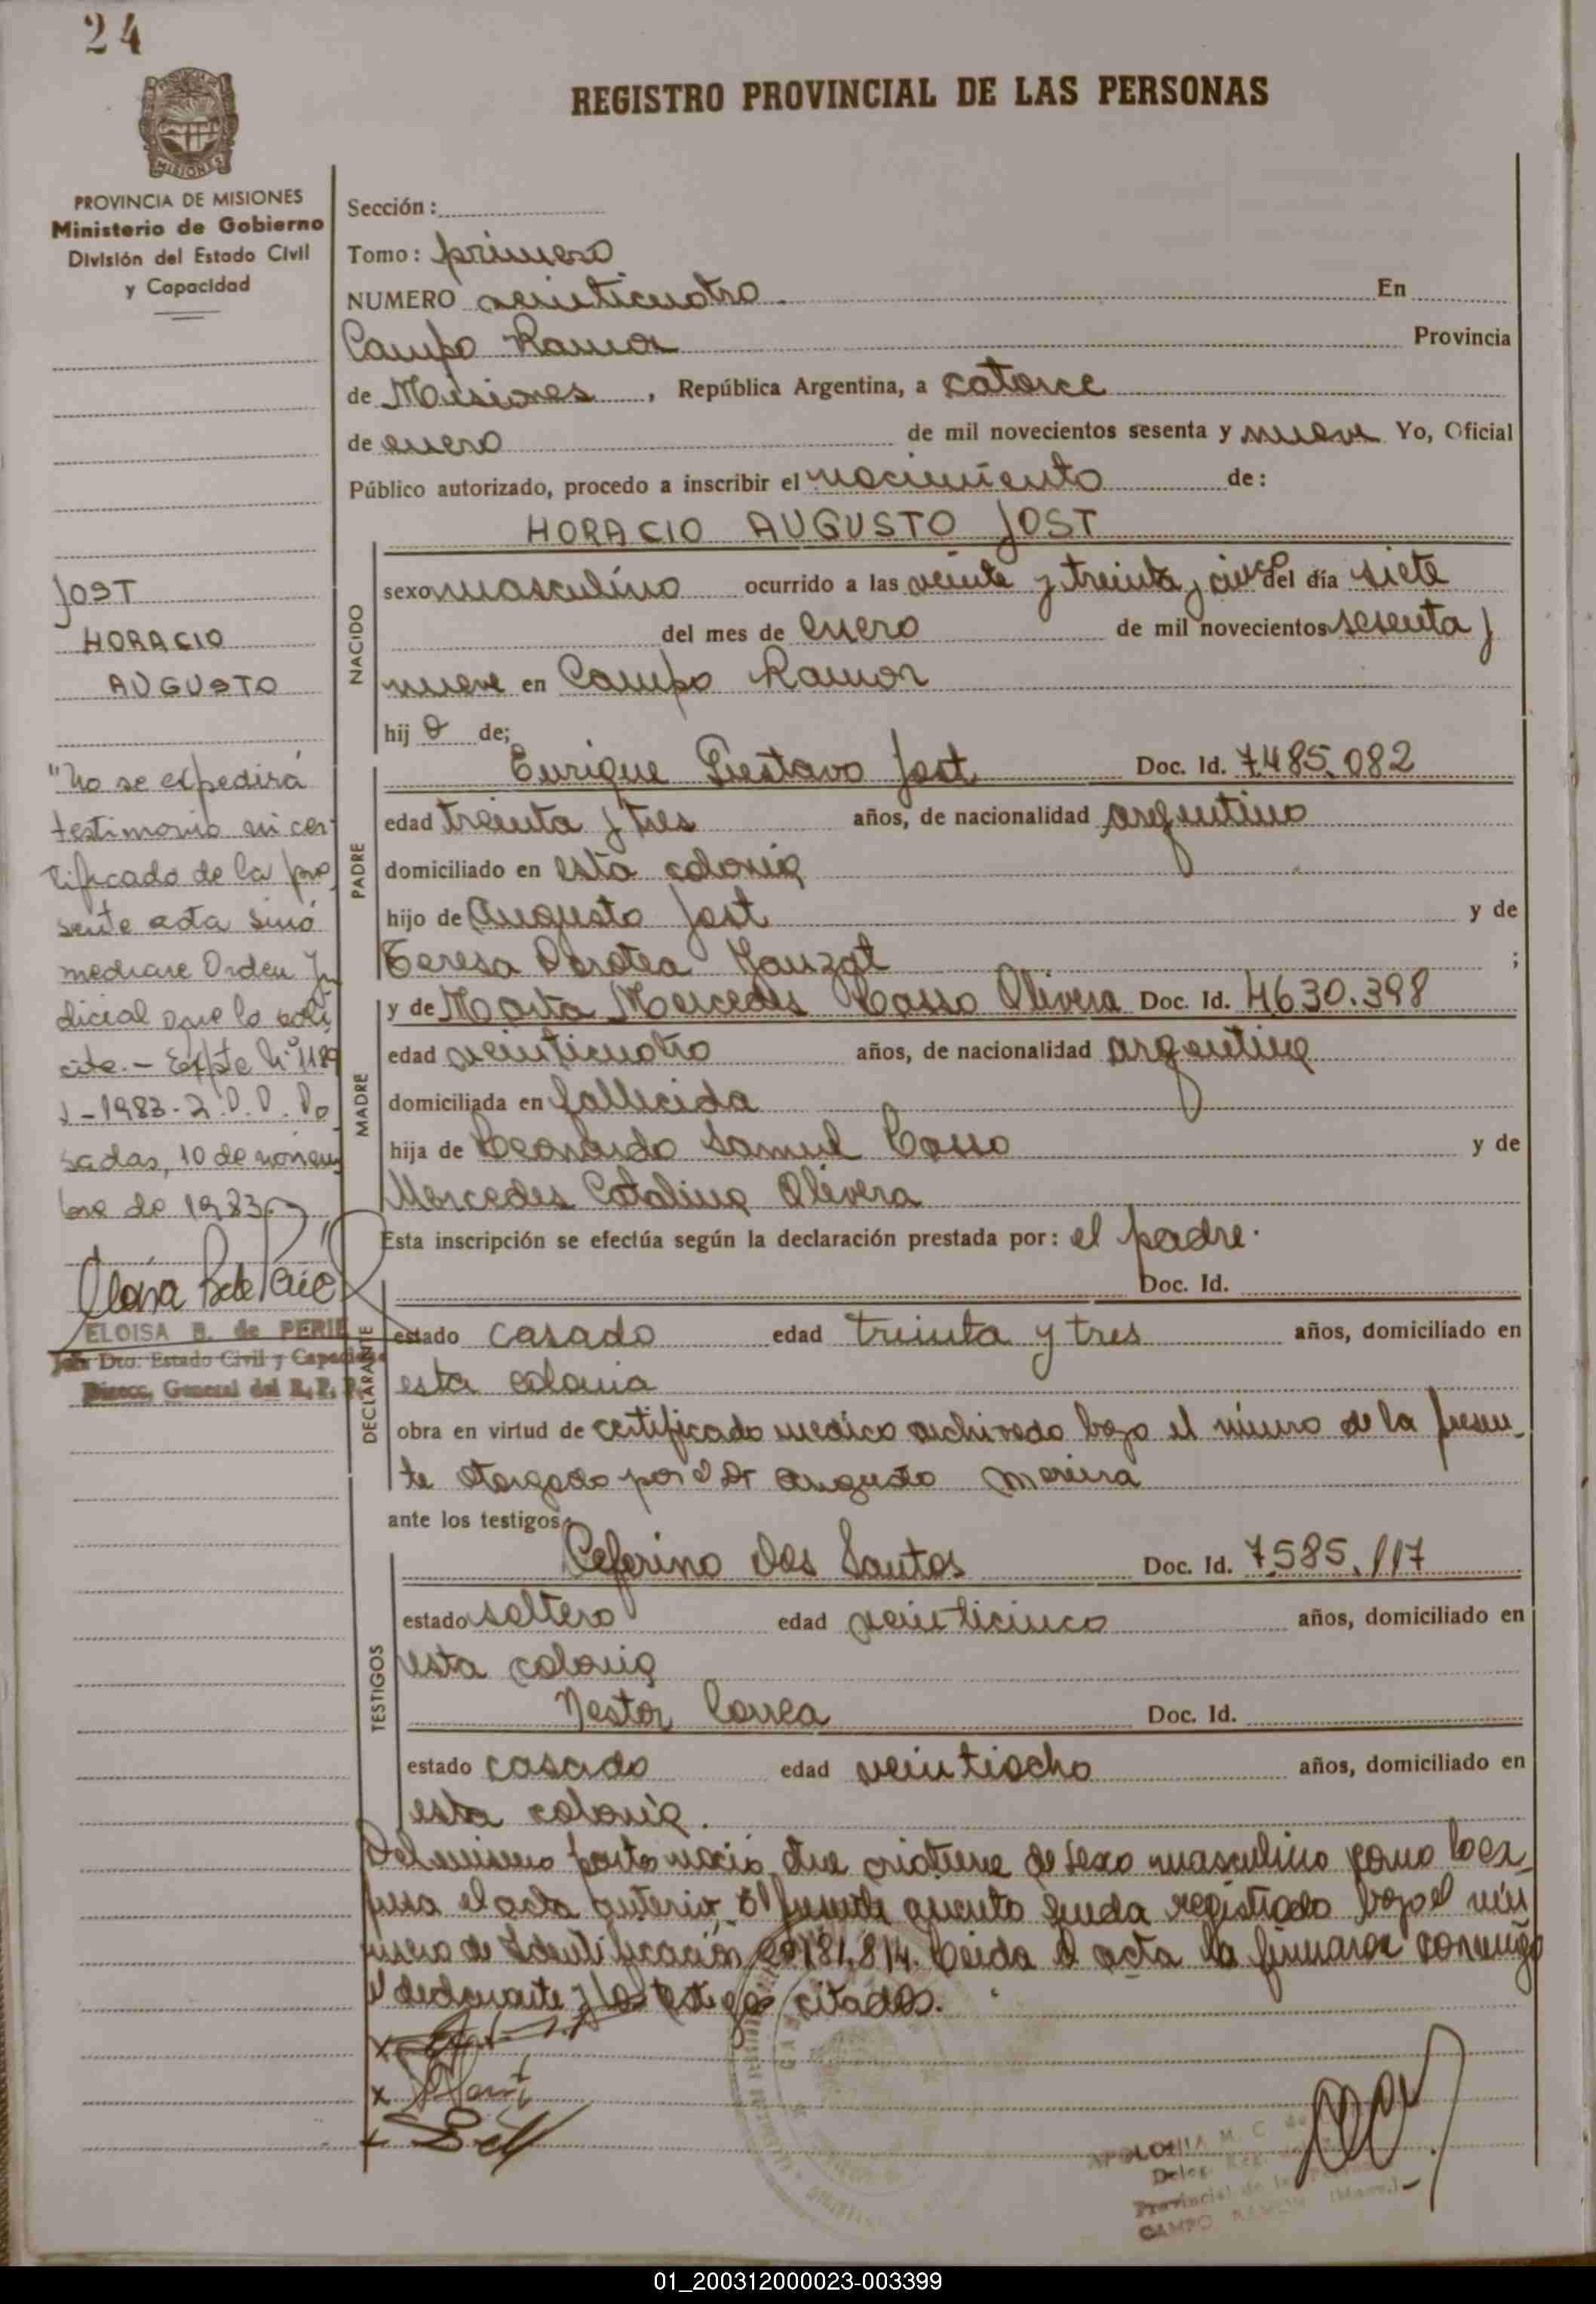 24
REGISTRO PROVINCIAL DE LAS PERSONAS
MISIONES
PROVINCIA DE MISIONES
Ministerio de Gobierno
División del Estado Civil
y Capacidad
Sección:
Tomo: primero
NUMERO veinticuatro. En
Campo Ramon Provincia
de Misiones, República Argentina, a catorce
de enero de mil novecientos sesenta y nueve Yo, Oficial
Público autorizado, procedo a inscribir el nacimiento de:
HORACIO AUGUSTO JOST
JOST
HORACIO
AUGUSTO
NACIDO
sexo masculino ocurrido a las veinte y treinta y cinco del día siete
del mes de enero de mil novecientos sesenta y
nueve en Campo Ramon
hijo de;
"No se expedirá
testimonio ni cer-
tificado de la pre
sente acta sinó
mediare Orden Ju
dicial que lo soli
cite.- Expte Nº 1189
J-1983-2.D.D. Po
sadas, 10 de noviem
bre de 1983
ELOISA B. de PERIE
Jefe Dto. Estado Civil y Capacidad
Direcc. General del R. P. P.
PADRE
Enrique Gustavo Jost Doc. Id. 7.485.082
edad treinta y tres años, de nacionalidad argentino
domiciliado en esta colonia
hijo de Augusto Jost y de
Teresa Dorotea ;
MADRE
y de Marta Mercedes Cosso Olivera Doc. Id. 4.630.398
edad veinticuatro años, de nacionalidad argentina
domiciliada en fallecida
hija de Leonardo Samuel Cosso y de
Mercedes Catalina Olivera
Esta inscripción se efectúa según la declaración prestada por: el padre.
Doc. Id.
DECLARANTE
estado casado edad treinta y tres años, domiciliado en
esta colonia
obra en virtud de certificado medico archivado bajo el número de la presen-
te otorgado por el Dr Augusto Moreira
ante los testigos:
TESTIGOS
Ceferino Dos Santos Doc. Id. 7.585.117
estado soltero edad veinticinco años, domiciliado en
esta colonia
Nestor Correa Doc. Id.
estado casado edad veintiocho años, domiciliado en
esta colonia.
Del mismo parto nació otra criatura de sexo masculino como lo ex
presa el acta anterior, El presente asiento queda registrado bajo el nú
mero de Identificación 20.181.814. Leida el acta la firmaron conmigo
el declarante y los testigos citados.
x
x
x
APOLONIA M. C. de
Deleg. Reg.
Provincial de las Personas
CAMPO RAMON (Mnes.)
01_200312000023-003399